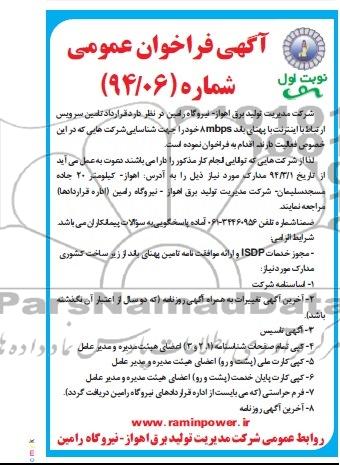 آگهی فراخوان عمومی
شماره (۹۴/۰۶)
نوبت اول
شرکت مدیریت تولید برق اهواز- نیروگاه رامین در نظر دارد قرارداد تامین سرویس
ارتباط با اینترنت با پهنای باند ۸mbps خود را جهت شناسایی شرکت هایی که در این
خصوص فعالیت دارند، اقدام به فراخوان نموده است.
لذا از شرکت هایی که توانایی انجام کار مذکور را دارا می باشند دعوت به عمل می آید
از تاریخ ۹۴/۳/۱ مدارک مورد نیاز ذیل را به آدرس: اهواز- کیلومتر ۲۰ جاده
مسجدسلیمان- شرکت مدیریت تولید برق اهواز - نیروگاه رامین (اداره قراردادها)
مراجعه نمایند.
ضمنا شماره تلفن ۳۴۴۶۰۹۵۶-۰۶۱ آماده پاسخگویی به سؤالات پیمانکاران می باشد.
شرایط الزامی:
- مجوز خدمات ISDP و ارائه موافقت نامه تامین پهنای باند از زیر ساخت کشوری
مدارک مورد نیاز:
۱- اساسنامه شرکت
۲- آخرین آگهی تغییرات به همراه آگهی روزنامه (که دو سال از اعتبار آن نگذشته
باشد).
۳- آگهی تاسیس
۴- کپی تمام صفحات شناسنامه (۱، ۲ و ۳) اعضای هیئت مدیره و مدیر عامل
۵- کپی کارت ملی (پشت و رو) اعضای هیئت مدیره و مدیر عامل
۶- کپی کارت پایان خدمت (پشت و رو) اعضای هیئت مدیره و مدیر عامل
۷- فرم حراستی (که می بایست از اداره قراردادهای نیروگاه رامین دریافت گردد).
۸- آخرین آگهی روزنامه
www.raminpower.ir
روابط عمومی شرکت مدیریت تولید برق اهواز- نیروگاه رامین